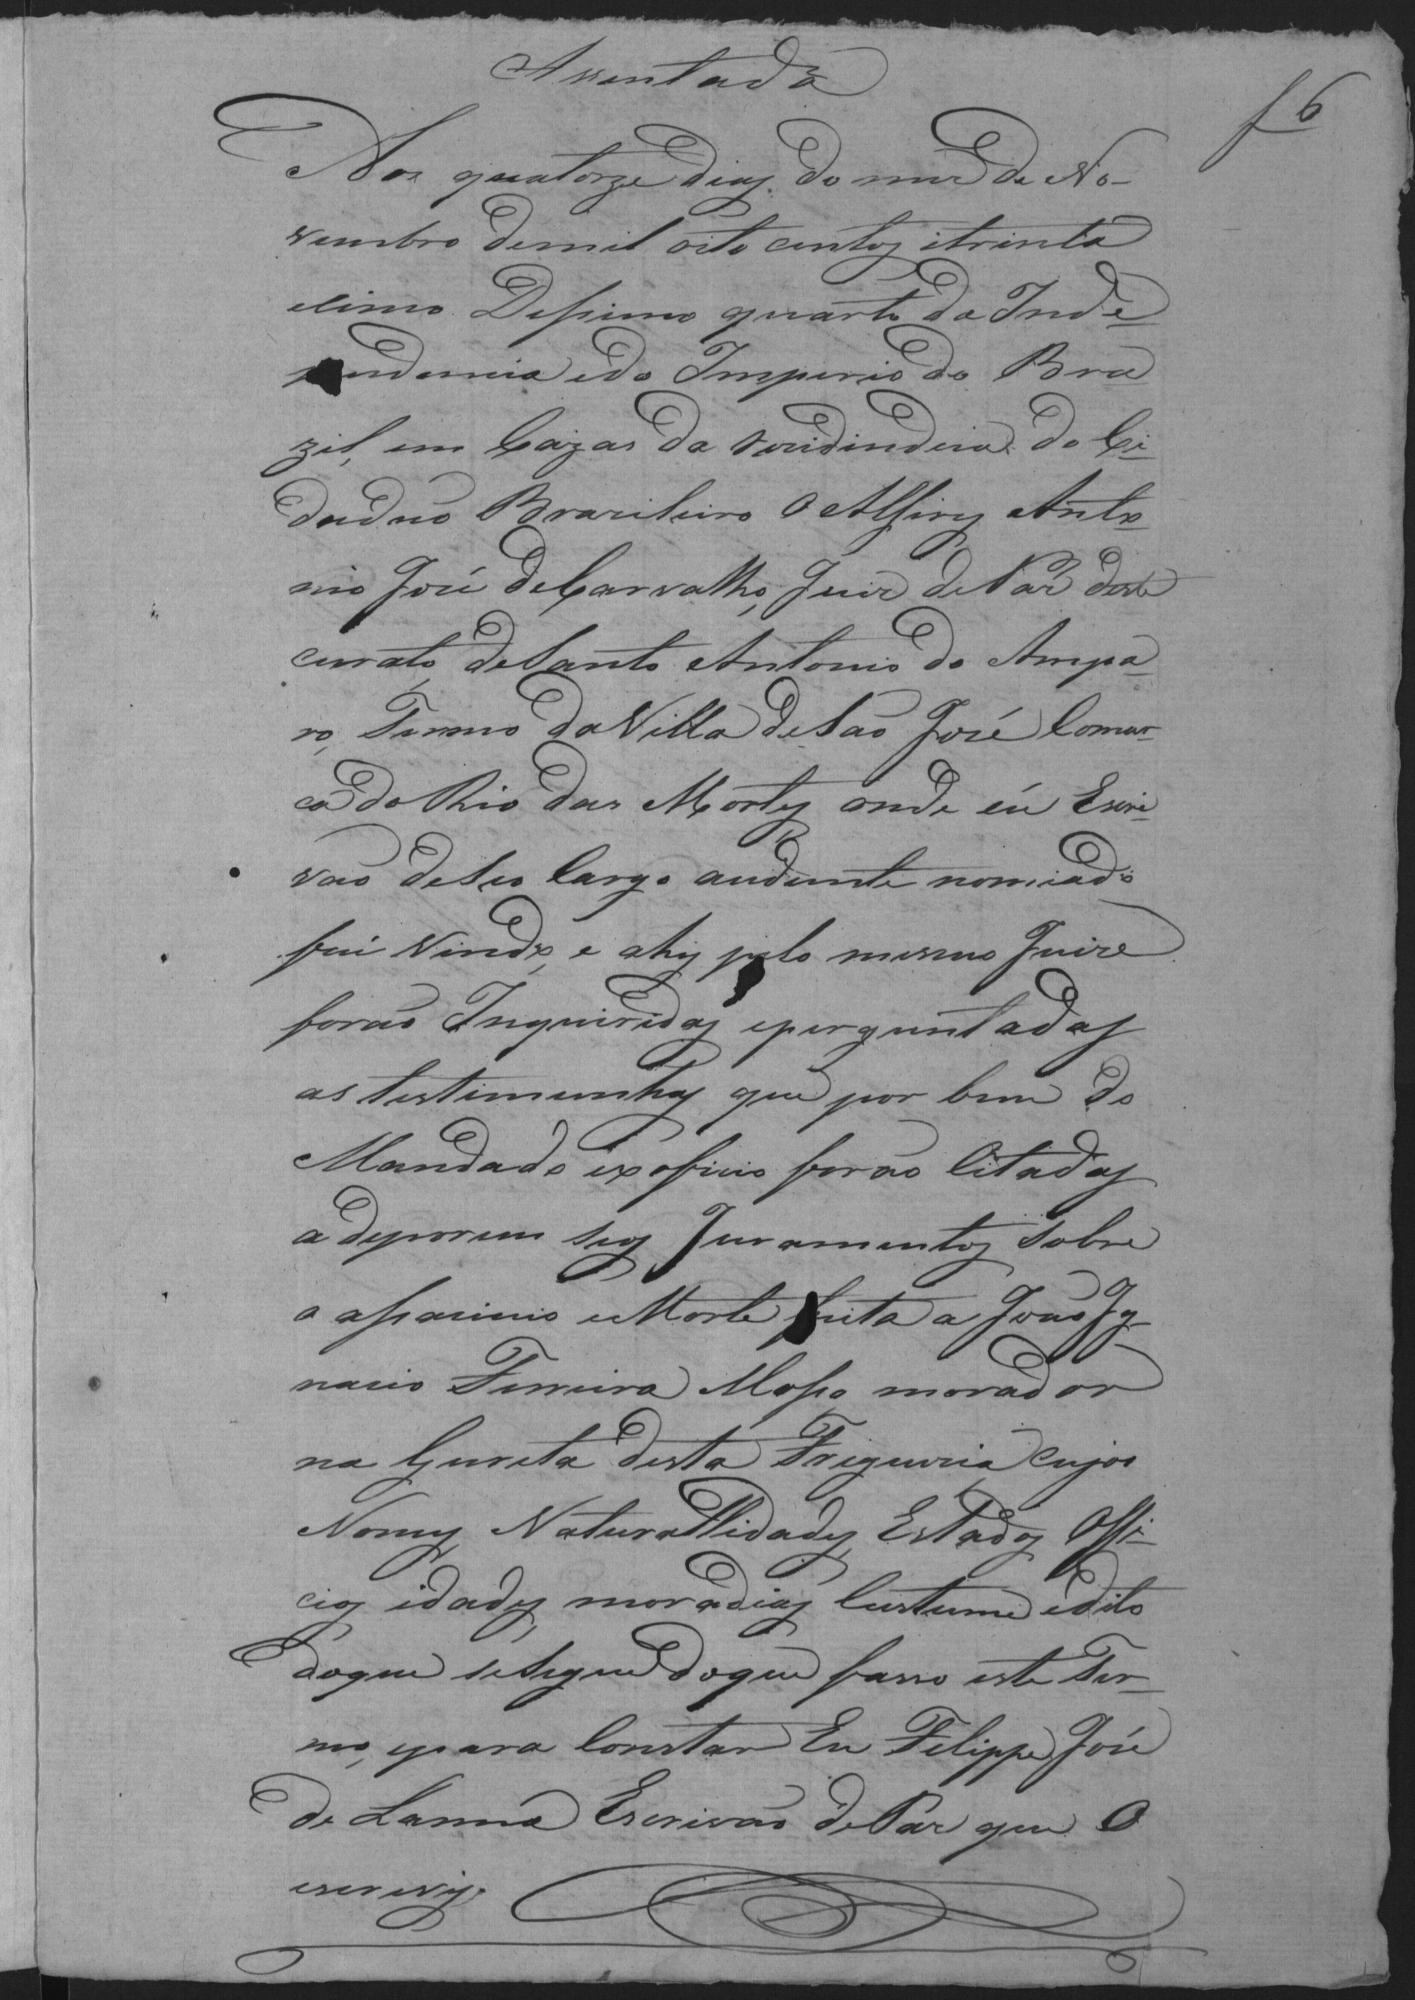 Assentada
f 6
Aos quatorze dias do mes de No-
vembro de mil oito centos e trinta
e cinco Desimo quarto da Inde-
pendencia e do Imperio do Bra
zil, em Cazas da rezidindcia do Ci-
dadão Brazileiro O Alferes Anto-
nio José de Carvalho, Juiz de Paz deste
curato, de Santo Antonio do Ampa-
ro, Termo da Villa de São José Comar-
ca do Rio das Mortes onde eú Escri-
vão de seo Cargo audiente nomiado
fui Vindo, e ahy pelo mesmo Juize
forão Inquiridas e perguntadas
as testimunhas que por bem do
Mandado ex oficio forão Citadas
a deporem seos Juramentos sobre
o assacinio e Morte feita a João Ig-
nacio Ferreira Mosso, morador
na Gurita desta Freguezia cujos
Nomes, Naturallidades, Estados Offi-
cios idades, moradias Custume e dito
do que se segue do que fasso este Ter-
mo, e para Constar Eu Filippe José
de Lanna Escrivão de Paz que O
escrevy.